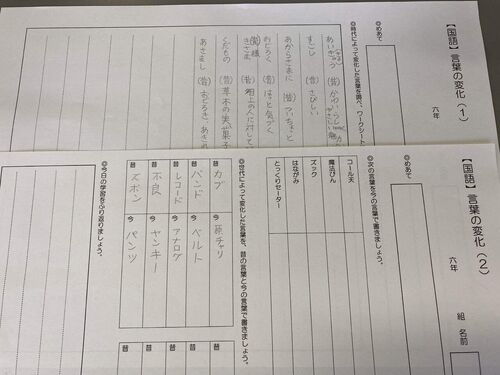 【国語】言葉の変化(1)
六年
◎めあて
◎時代によって変化した言葉を調べ、ワークシート
あいきょう (昔) かわいらしい
すごし (昔) さびしい
あからさまに (昔) ついちょっと
おどろく (昔) はっと気づく
きさま (昔) 目上の人に対して
くだもの (昔) 草木の実 菓子
あさまし (昔) おどろき あきれ
【国語】言葉の変化(2)
六年 組 名前
◎めあて
◎次の言葉を今の言葉で書きましょう。
コール天
魔法びん
ズック
はながみ
とっくりセーター
◎世代によって変化した言葉を、昔の言葉と今の言葉で書きましょう。
昔 カブ 今 原チャリ
昔 バンド 今 ベルト
昔 レコード 今 アナログ
昔 不良 今 ヤンキー
昔 ズボン 今 パンツ
昔
昔
昔
昔
昔
◎今日の学習をふり返りましょう。